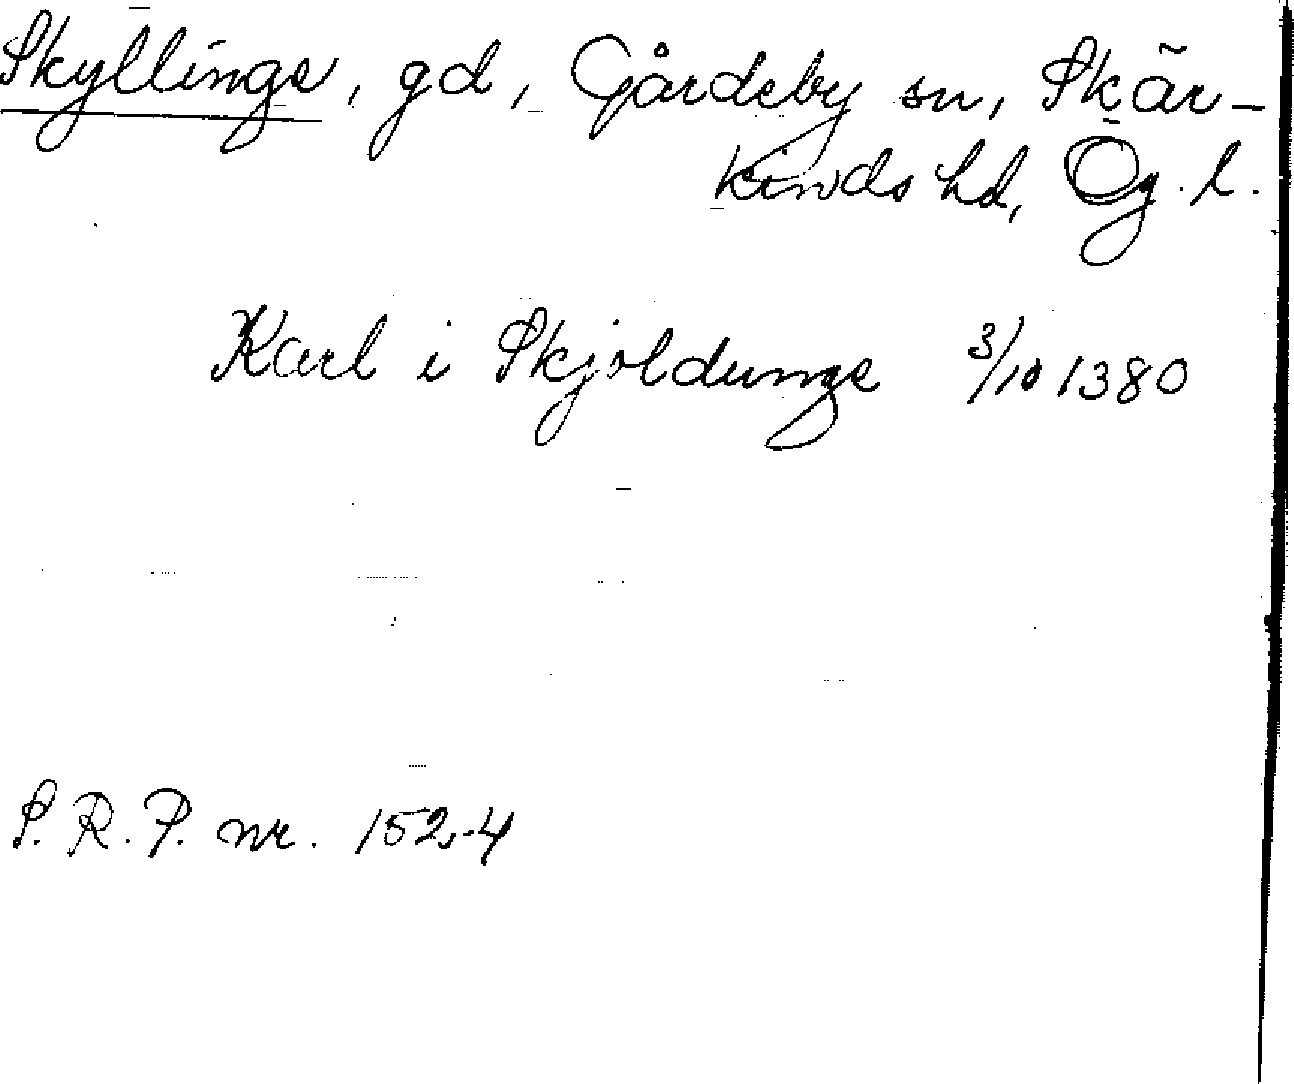 Skyllinge, gd, Gårdeby sn, Skär-
kinds hd, Ög. l.
Karl i Skjoldunge 3/10 1380
S.R.P. nr. 1524